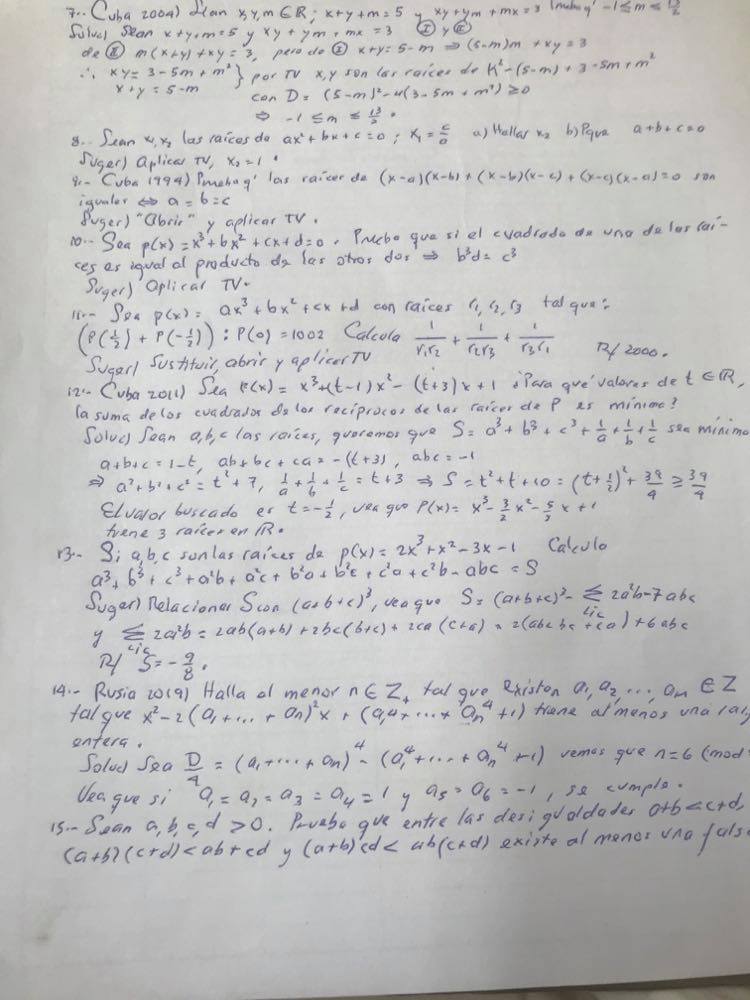 7.- Cuba 2004) Sean x,y,m ∈ R ; x+y+m=5 y xy+ym+mx=3 Prueba q' -1 ≤ m ≤ 13/3
Soluc) Sean x+y+m=5 y xy+ym+mx=3 Ⓘ y Ⓘ︎Ⓘ
de Ⓘ︎Ⓘ m(x+y)+xy=3, pero de Ⓘ x+y=5-m ⇒ (5-m)m+xy=3
∴ xy=3-5m+m² } por TV x,y son las raíces de K²-(5-m)+3-5m+m²
x+y=5-m
con D=(5-m)²-4(3-5m+m²) ≥ 0
⇒ -1 ≤ m ≤ 13/3
8.- Sean x₁,x₂ las raíces de ax²+bx+c=0 ; x₁=c/a a) Hallar x₂ b) Pque a+b+c=0
Suger) Aplicar TV, x₂=1.
9.- Cuba 1994) Prueba q' las raíces de (x-a)(x-b)+(x-b)(x-c)+(x-c)(x-a)=0 son
iguales ⇔ a=b=c
Suger) "Abrir" y aplicar TV.
10.- Sea p(x)=x³+bx²+cx+d=0. Prueba que si el cuadrado de una de las raí-
ces es igual al producto de las otros dos ⇒ b³d=c³
Suger) Aplicar TV.
11.- Sea p(x)= ax³+bx²+cx+d con raíces r₁, r₂, r₃ tal que:
(P(1/2)+P(-1/2)) : P(0)=1002 Calcula 1/r₁r₂ + 1/r₂r₃ + 1/r₃r₁ R/ 2000.
Suger) Sustituir, abrir y aplicar TV
12.- Cuba 2011) Sea P(x)=x³+(t-1)x²-(t+3)x+1 ¿Para qué valores de t ∈ R,
la suma de los cuadrados de los recíprocos de las raíces de P es mínima?
Soluc) Sean a,b,c las raíces, queremos que S=a³+b³+c³+1/a+1/b+1/c sea mínima
a+b+c=1-t, ab+bc+ca=-(t+3), abc=-1
⇒ a²+b²+c²=t²+7, 1/a+1/b+1/c=t+3 ⇒ S=t²+t+10=(t+1/2)²+39/4 ≥ 39/4
El valor buscado es t=-1/2, vea que P(x)= x³-3/2x²-5/2x+1
tiene 3 raíces en R.
13.- Si a,b,c son las raíces de p(x)=2x³+x²-3x-1 Calcula
a³+b³+c³+a²b+a²c+b²a+b²c+c²a+c²b-abc=S
Suger) Relacionar S con (a+b+c)³, vea que S=(a+b+c)³-Σcic 2a²b-7abc
y Σcic 2a²b=2ab(a+b)+2bc(b+c)+2ca(c+a)=2(abc bc+ca)+6abc
R/ S=-9/8.
14.- Rusia 2019) Halla el menor n ∈ Z₊ tal que existen a₁,a₂,...,aₙ ∈ Z
tal que x²-2(a₁+...+aₙ)²x+(a₁⁴+...+aₙ⁴+1) tiene al menos una raíz
entera.
Soluc) Sea D/4=(a₁+...+aₙ)⁴-(a₁⁴+...+aₙ⁴+1) vemos que n=6 (mod
Vea que si a₁=a₂=a₃=a₄=1 y a₅=a₆=-1, se cumple.
15.- Sean a,b,c,d>0. Prueba que entre las desigualdades a+b<c+d,
(a+b)(c+d)<ab+cd y (a+b)cd<ab(c+d) existe al menos una falsa